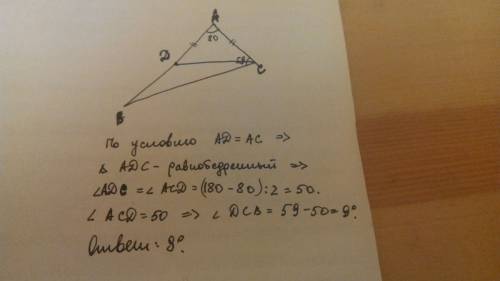 A
80
D
59
C
B
По условию AD = AC =>
Δ ADC - равнобедренный =>
∠ADC = ∠ACD = (180 - 80) : 2 = 50.
∠ ACD = 50 => ∠ DCB = 59 - 50 = 9°.
Ответ: 9°.